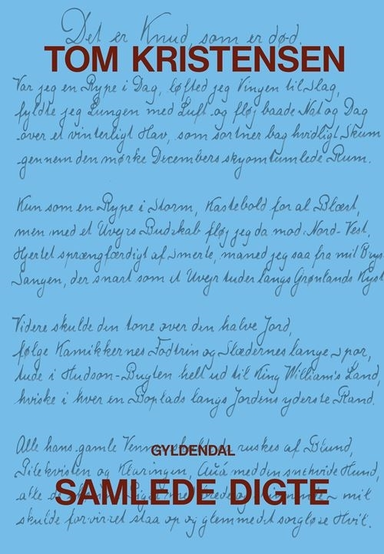 Det er Knud, som er død.
TOM KRISTENSEN
Var jeg en Rype i Dag, løfted jeg Vingen til Slag,
fyldte jeg Lungen med Luft og fløj baade Nat og Dag
over et vinterligt Hav, som sortner bag hvidligt Skum
gennem den mørke Decembers skyomtumlede Rum.
Kun som en Rype i Storm, Kastebold for al Blæst,
men med et Uvejrs Budskab fløj jeg da mod Nord-Vest,
Hjertet sprængfærdigt af Smerte, maned jeg saa fra mit Brys
Sangen, der snart som et Uvejr tuder langs Grønlands Kyst
Videre skulde den tone over den halve Jord,
følge Kamikkernes Fodtrin og Slædernes lange Spor,
tude i Hudson-Bugten helt ud til King William's Land,
hviske i hver en Boplads langs Jordens yderste Rand.
Alle hans gamle Venner skulde ruskes af Blund,
GYLDENDAL
Pilekvisten og Kavringen, Auá med den snehvide Hund,
alle
SAMLEDE DIGTE
mit
skulde forvirret staa op og glemme sorgløse Hvil.